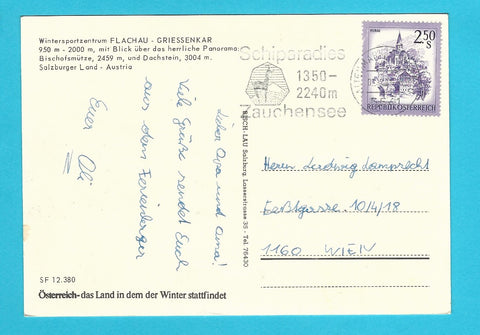 Wintersportzentrum FLACHAU - GRIESSENKAR
950 m - 2000 m, mit Blick über das herrliche Panorama:
Bischofsmütze, 2459 m, und Dachstein, 3004 m.
Salzburger Land - Austria
Lieber Opa und Oma!
Viele Grüße sendet Euch
aus dem Ferienlager
Euer Oli
SF 12.380
Österreich - das Land in dem der Winter stattfindet
LAU Salzburg Lasserstrasse 35 - Tel. 76430
Schiparadies
1350-
2240m
Zauchensee
2.50
S
REPUBLIK ÖSTERREICH
Herrn Ludwig Lamprecht
10/4/18
1160 WIEN